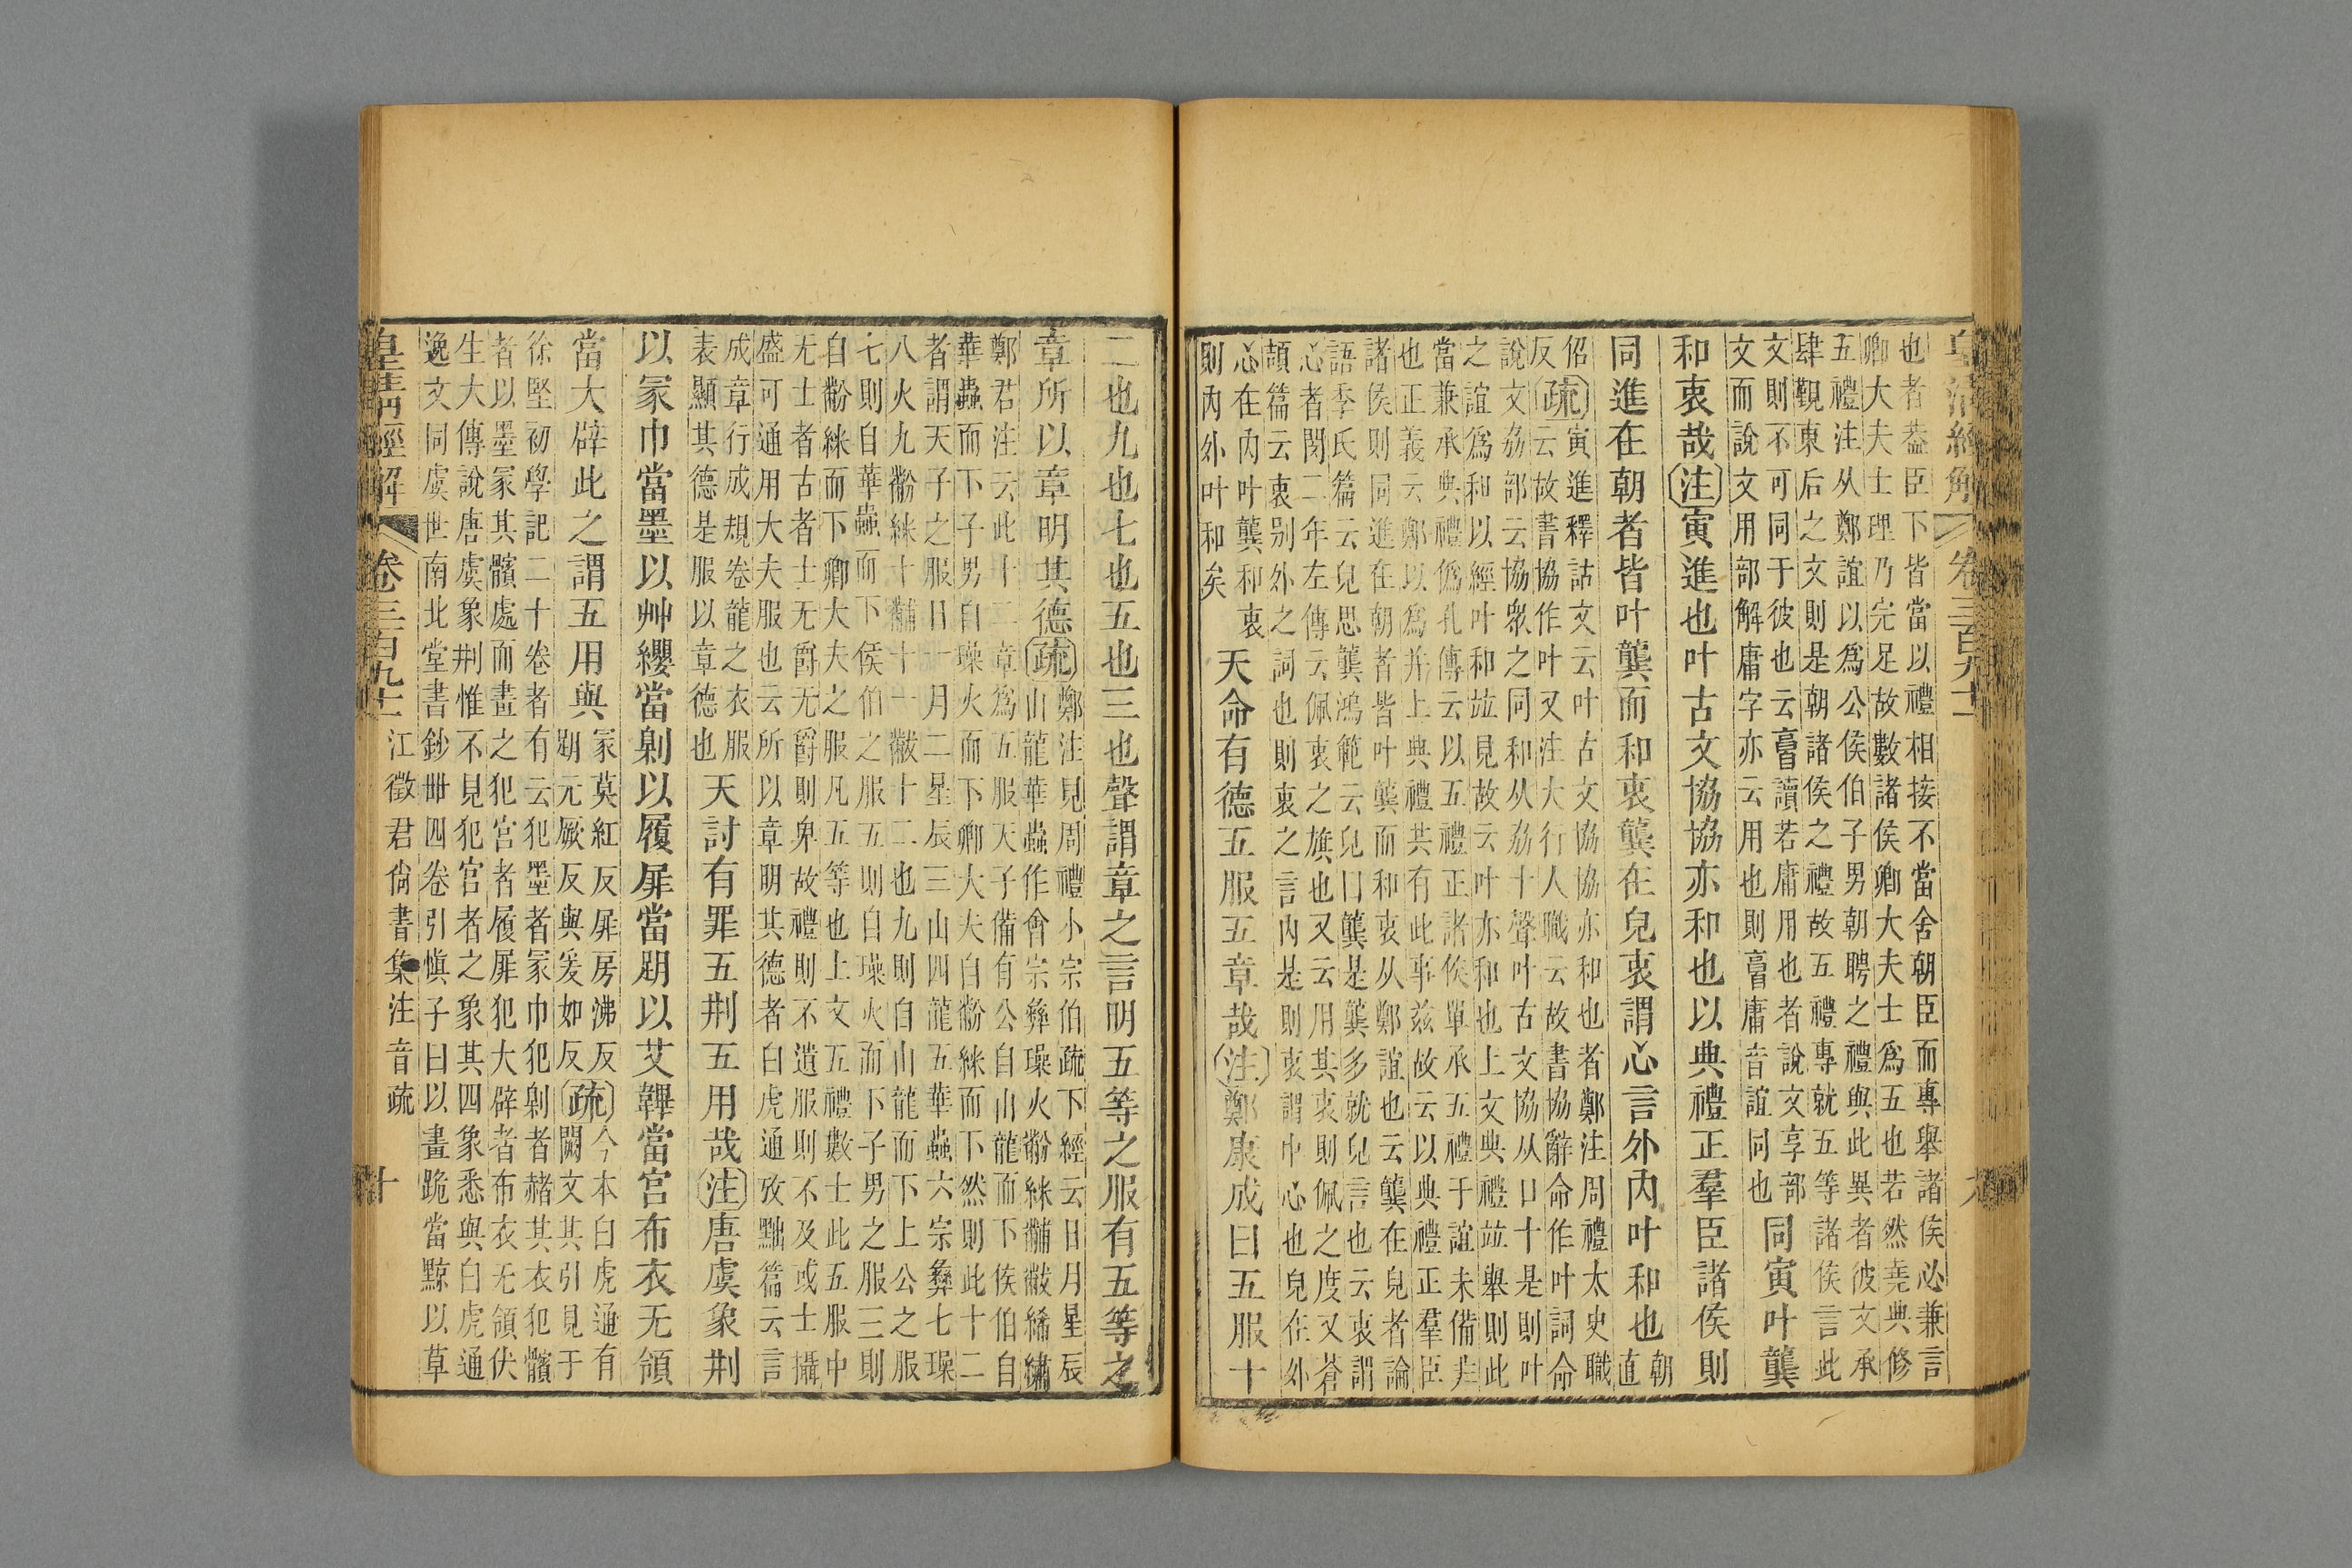 皇清經解 卷三百九十二 九
也者葢臣下皆當以禮相接不當舍朝臣而專舉諸侯必兼言
卿大夫士理乃完足故數諸侯卿大夫士爲五也若然堯典修
五禮注从鄭誼以爲公侯伯子男朝聘之禮與此異者彼文承
肆覲東后之文則是朝諸侯之禮故五禮專就五等諸侯言此
文則不可同于彼也云𠅠讀若庸用也者說文享部
文而說文用部解庸字亦云用也則𠅠庸音誼同也
同寅叶龔
和衷哉注寅進也叶古文協協亦和也以典禮正羣臣諸侯則
同進在朝者皆叶龔而和衷龔在皃衷謂心言外內叶和也朝直
佋反疏寅進釋詁文云叶古文協協亦和也者鄭注周禮太史職
云故書協作叶又注大行人職云故書協辭命作叶詞命
說文劦部云協眾之同和从劦十聲叶古文協从口十是則叶
之誼爲和以經叶和竝見故云叶亦和也上文典禮竝舉則此
當兼承典禮僞孔傳云以五禮正諸侯單承五禮于誼未備非
也正義云鄭以爲幷上典禮共有此事茲故云以典禮正羣臣
諸侯則同進在朝者皆叶龔而和衷从鄭誼也云龔在皃者論
語季氏篇云皃思龔鴻範云皃曰龔是龔多就皃言也云衷謂
心者閔二年左傳云佩衷之旗也又云用其衷則佩之度又蒼
頡篇云衷别外之詞也則衷之言內是則衷謂中心也皃在外
心在內叶龔和衷
則內外叶和矣
天命有德五服五章哉注鄭康成曰五服十
二也九也七也五也三也聲謂章之言明五等之服有五等之
章所以章明其德疏鄭注見周禮小宗伯疏下經云日月星辰
山龍華蟲作會宗彝璪火黺䋛黼黻絺繡
鄭君注云此十二章爲五服天子備有公自山龍而下侯伯自
華蟲而下子男自璪火而下卿大夫自黺䋛而下然則此十二
者謂天子之服日一月二星辰三山四龍五華蟲六宗彝七璪
八火九黺䋛十黼十一黻十二也九則自山龍而下上公之服
七則自華蟲而下侯伯之服五則自璪火而下子男之服三則
自黺䋛而下卿大夫之服凡五等也上文五禮數士此五服中
无士者古者士无爵无爵則卑故禮則不遺服則不及或士攝
盛可通用大夫服也云所以章明其德者白虎通攷黜篇云言
成章行成規卷龍之衣服
表顯其德是服以章德也
天討有罪五㓝五用哉注唐虞象㓝
以冡巾當墨以艸纓當劓以履屝當刖以艾韠當宮布衣无領
當大辟此之謂五用與冡莫紅反屝房沸反
刖元厥反與爰如反
疏今本白虎通有
闕文其引見于
徐堅初學記二十卷者有云犯墨者冡巾犯劓者赭其衣犯髕
者以墨冡其髕處而畫之犯宮者履屝犯大辟者布衣无領伏
生大傳說唐虞象㓝惟不見犯宮者之象其四象悉與白虎通
逸文同虞世南北堂書鈔卌四卷引愼子曰以畫跪當黥以草
皇清經解 卷三百九十二 江徵君尙書集注音疏 十